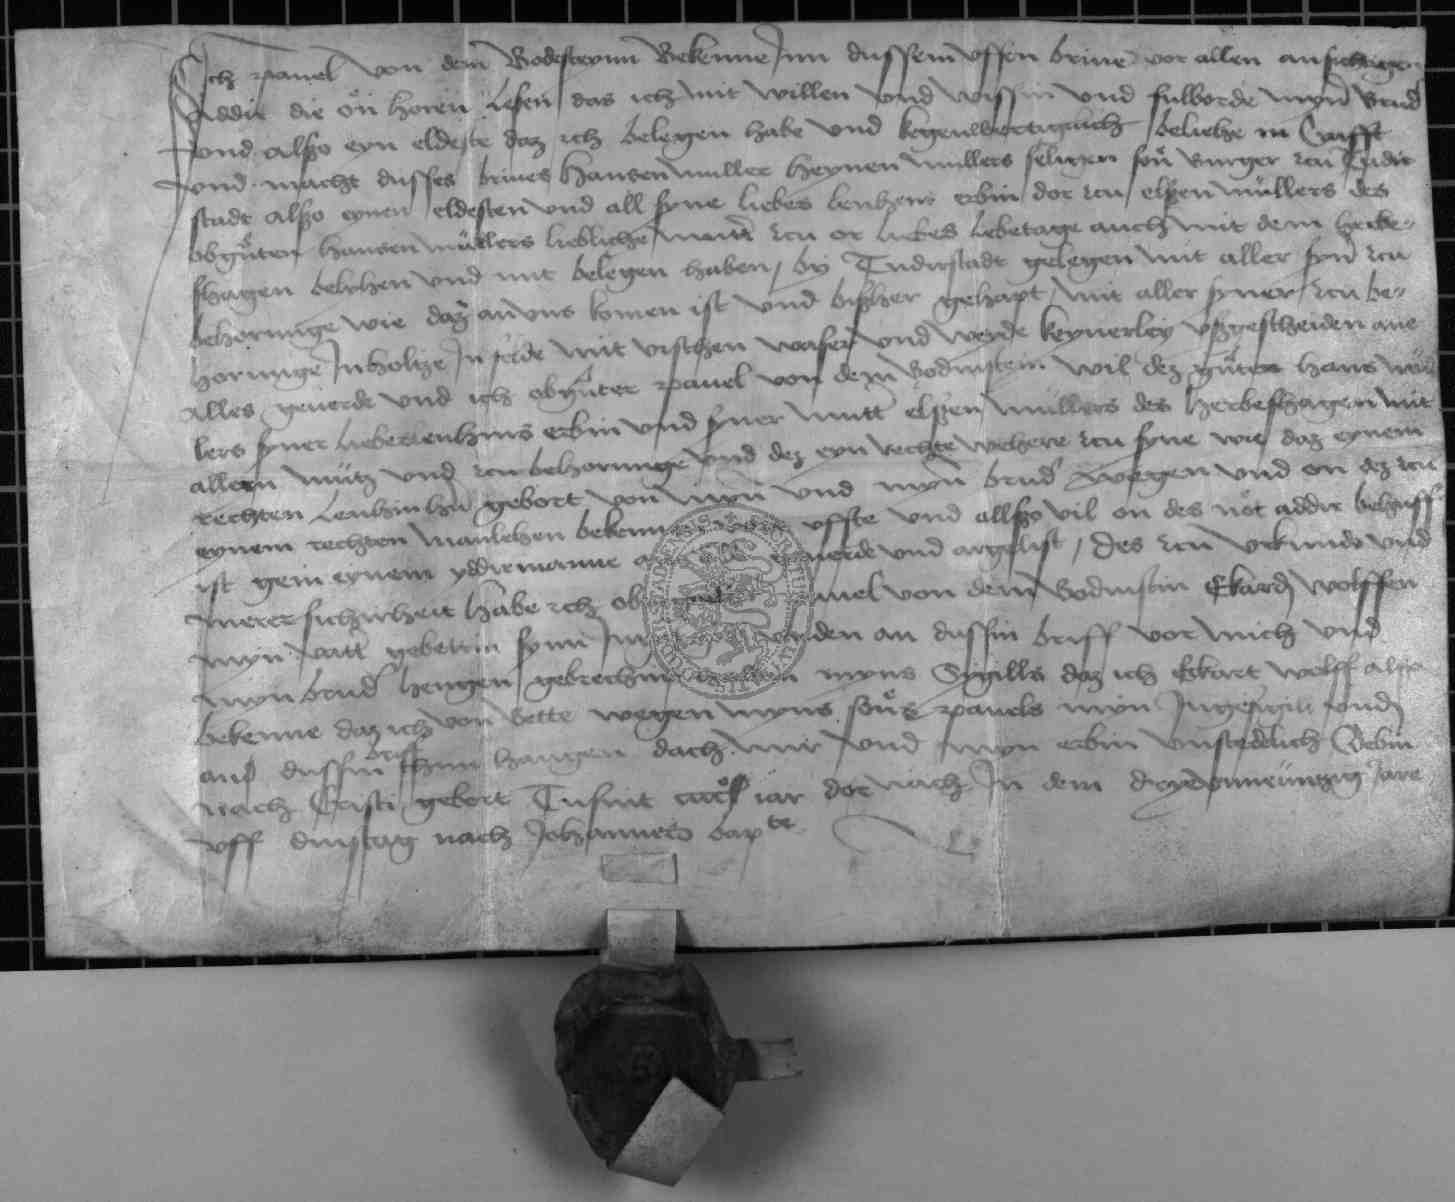 Ich pauel von dem Bodesteynn Bekenne Inn dussem uffen briue vor allen ansichtigen
Addir die on horen lesen das ich mit willen vnd wissin vnd fulborde myn Brud
vnd alßo eyn eldeste daz ich belegen habe vnd kegenwertiglich beliehe in Crafft
vnd macht dusses briues Hansen muller Heynen mullers seligen son Burger czu Tudir
stadt alßo eynen eldesten vnd all syne liebes lenhens erbin dor czu elßen mullers des
obguten hansen mullers liebliche mutt czu or liebes lebetage auch mit dem herbes
shagen belyhen vnd mit belegen haben, by Tudirstadt gelegen mit aller syn czu
behorunge wie daz an vns komen ist vnd bißher gehapt, mit aller syner czu be
horunge In holtze In felde mit vischen wasser vnd weyde keynerley vßgescheiden ane
alles geuerde vnd ich obguter pauel von dem Bodinstein wil dez guten hans mul
lers syner lieberlenhins erbin vnd syner mutt elßen mullers des herbeshagen mit
allem nutz vnd czu behorunge vnd dez eyn rechte wehere czu syne wie daz eynem
rechten lenhin hern gebort von myn vnd myn brud wegen vnd on dez czu
eynem rechten manlehen bekennen uffte vnd allßo vil on des not addir behuff
ist gein eynem yddirmanne geuerde vnd argelist, Des czu vrkunde vnd
merer sichirheit habe ich pauel von dem Bodinstein Ekard wolffen
myn vatt gebetin syn an dussin briff vor mich vnd
myn brud hengen gebrechin myns Sygills daz ich Eckart wolff alßo
bekenne daz ich von bette wegen myns sons pauels myn Ingesigill vnd
an dussin briff thun hangen doch mir vnd myn erbin vnschedelich Gebin
nach Cristi gebort Tusint iar dor nach In dem dryvndnuntzig Jare
vff dinstag nach Johannes bapte